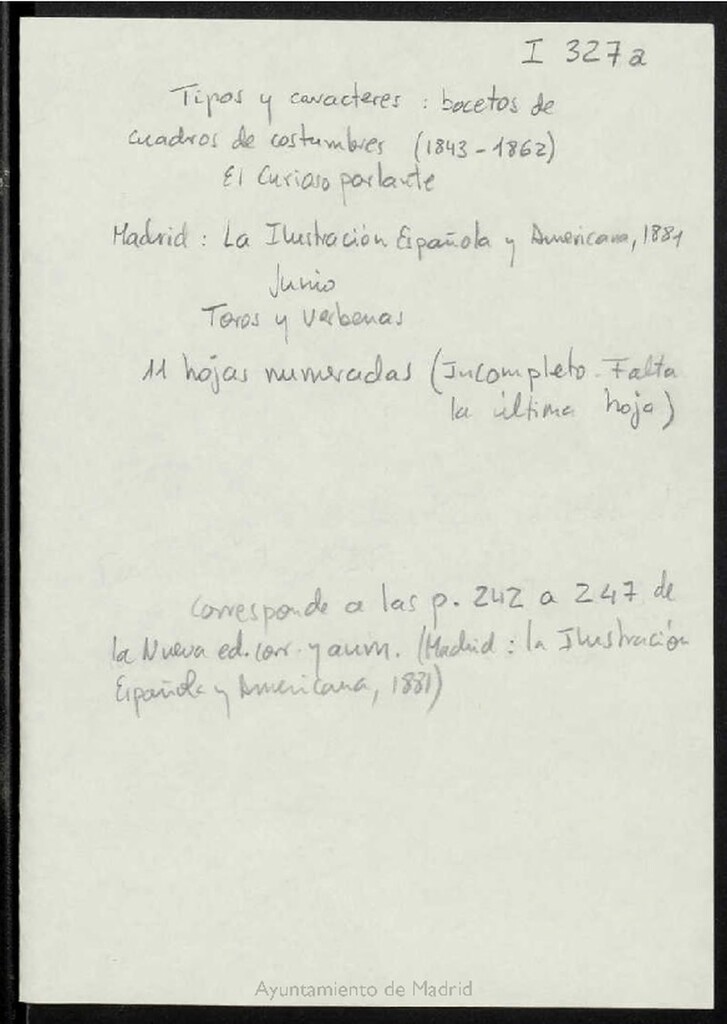 I 327a
Tipos y caracteres : bocetos de
cuadros de costumbres (1843-1862)
El Curioso parlante
Madrid : La Ilustración Española y Americana, 1881
Junio
Toros y verbenas
11 hojas numeradas (Incompleto. Falta
la última hoja)
Corresponde a las p. 242 a 247 de
la Nueva ed. corr. y aum. (Madrid : la Ilustración
Española y Americana, 1881)
Ayuntamiento de Madrid